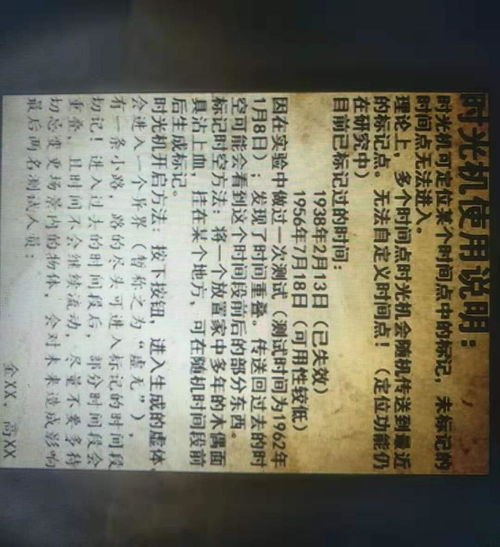 时光机使用说明：
时光机可定位某个时间点中的标记，未标记的
时间点无法进入。
理论上，多个时间点时光机会随机传送到最近
的标记点。无法自定义时间点！（定位功能仍
在研究中）
目前已标记过的时间：
1938年2月13日（已失效）
1956年7月18日（可用性较低）
因在实验中做过一次测试（测试时间为1962年
1月8日）；发现了时间重叠。传送回过去的时
空可能会看到这个时间段前后的部分东西。
标记时空方法：将一个放置家中多年的木偶面
具沾上血，挂在某个地方，可在随机时间段前
后生成标记。
时光机开启方法：按下按钮，进入生成的虚体，
会进入一个异界（暂称之为“虚无”），
有一条小路，路的尽头可进入标记的时间段
切记！进入过去的时间段后，部分时间段会
重叠，且时间不会继续流动，尽量不要多待
切忌变更场景内的物体，会对未来造成影响
最后两名测试人员：
金XX、高XX